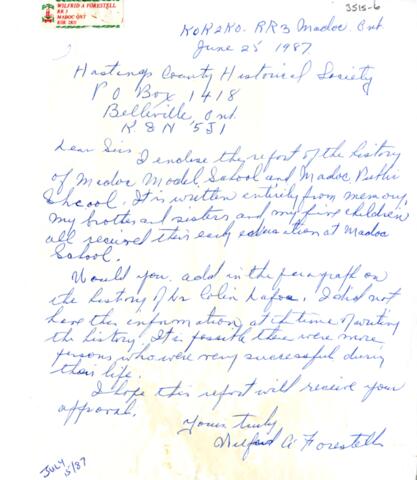 WILFRID A FORESTELL
RR 3
MADOC ONT
K0K 2K0
3515-6
K0K2K0. RR3 Madoc Ont
June 25 1987
Hastings County Historical Society
P O Box 1418
Belleville, Ont.
K8N 5J1
Dear Sirs
I enclose the report of the history
of Madoc Model School and Madoc Public
School. It is written entirely from memory,
my brother and sisters and my five children
all received their early education at Madoc
School.
Would you add in the paragraph on
the history of Dr Colin Lafoe. I did not
have this information at the time of writing
the history. It is possible there were more
persons who were very successful during
their life.
I hope this report will receive your
approval.
Yours truly
Wilfrid A. Forestell
JULY
15/87